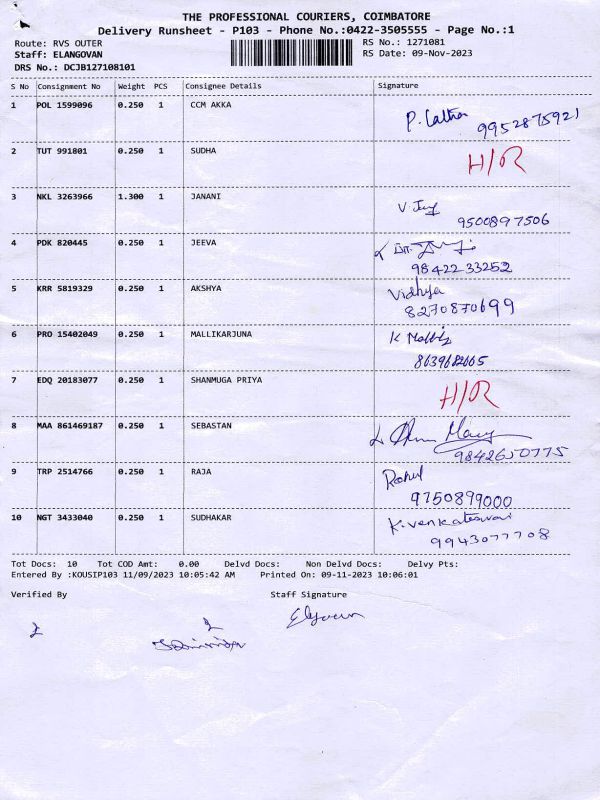 THE PROFESSIONAL COURIERS, COIMBATORE
Delivery Runsheet - P103 - Phone No.:0422-3505555 - Page No.:1
Route: RVS OUTER RS No.: 1271081
Staff: ELANGOVAN RS Date: 09-Nov-2023
DRS No.: DCJB127108101
S No Consignment No Weight PCS Consignee Details Signature
1 POL 1599096 0.250 1 CCM AKKA
P. Latha 9952875921
2 TUT 991801 0.250 1 SUDHA H/R
3 NKL 3263966 1.300 1 JANANI
9500897506
4 PDK 820445 0.250 1 JEEVA
98422 33252
5 KRR 5819329 0.250 1 AKSHYA Vidhya
8270870699
6 PRO 15402049 0.250 1 MALLIKARJUNA
8639682665
7 EDQ 20183077 0.250 1 SHANMUGA PRIYA H/R
8 MAA 861469187 0.250 1 SEBASTAN
9842650775
9 TRP 2514766 0.250 1 RAJA Rahul
9750899000
10 NGT 3433040 0.250 1 SUDHAKAR K. Venkateswari
9943077708
Tot Docs: 10 Tot COD Amt: 0.00 Delvd Docs: Non Delvd Docs: Delvy Pts:
Entered By :KOUSIP103 11/09/2023 10:05:42 AM Printed On: 09-11-2023 10:06:01
Verified By Staff Signature